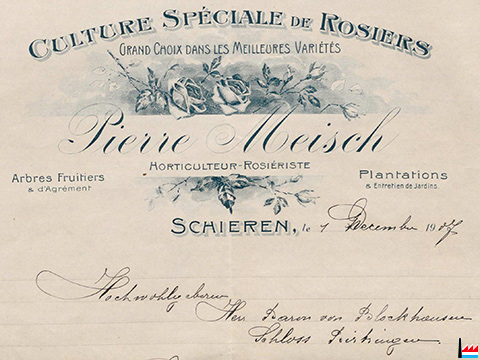 CULTURE SPÉCIALE DE ROSIERS
GRAND CHOIX DANS LES MEILLEURES VARIÉTÉS
Pierre Meisch
HORTICULTEUR-ROSIÉRISTE
Arbres Fruitiers
& d'Agrément
Plantations
& Entretien de Jardins.
SCHIEREN, le 1 Decembre 1907
Hochwohlgeboren
Herr Baron von Blochhausen
Schloss Birtringen